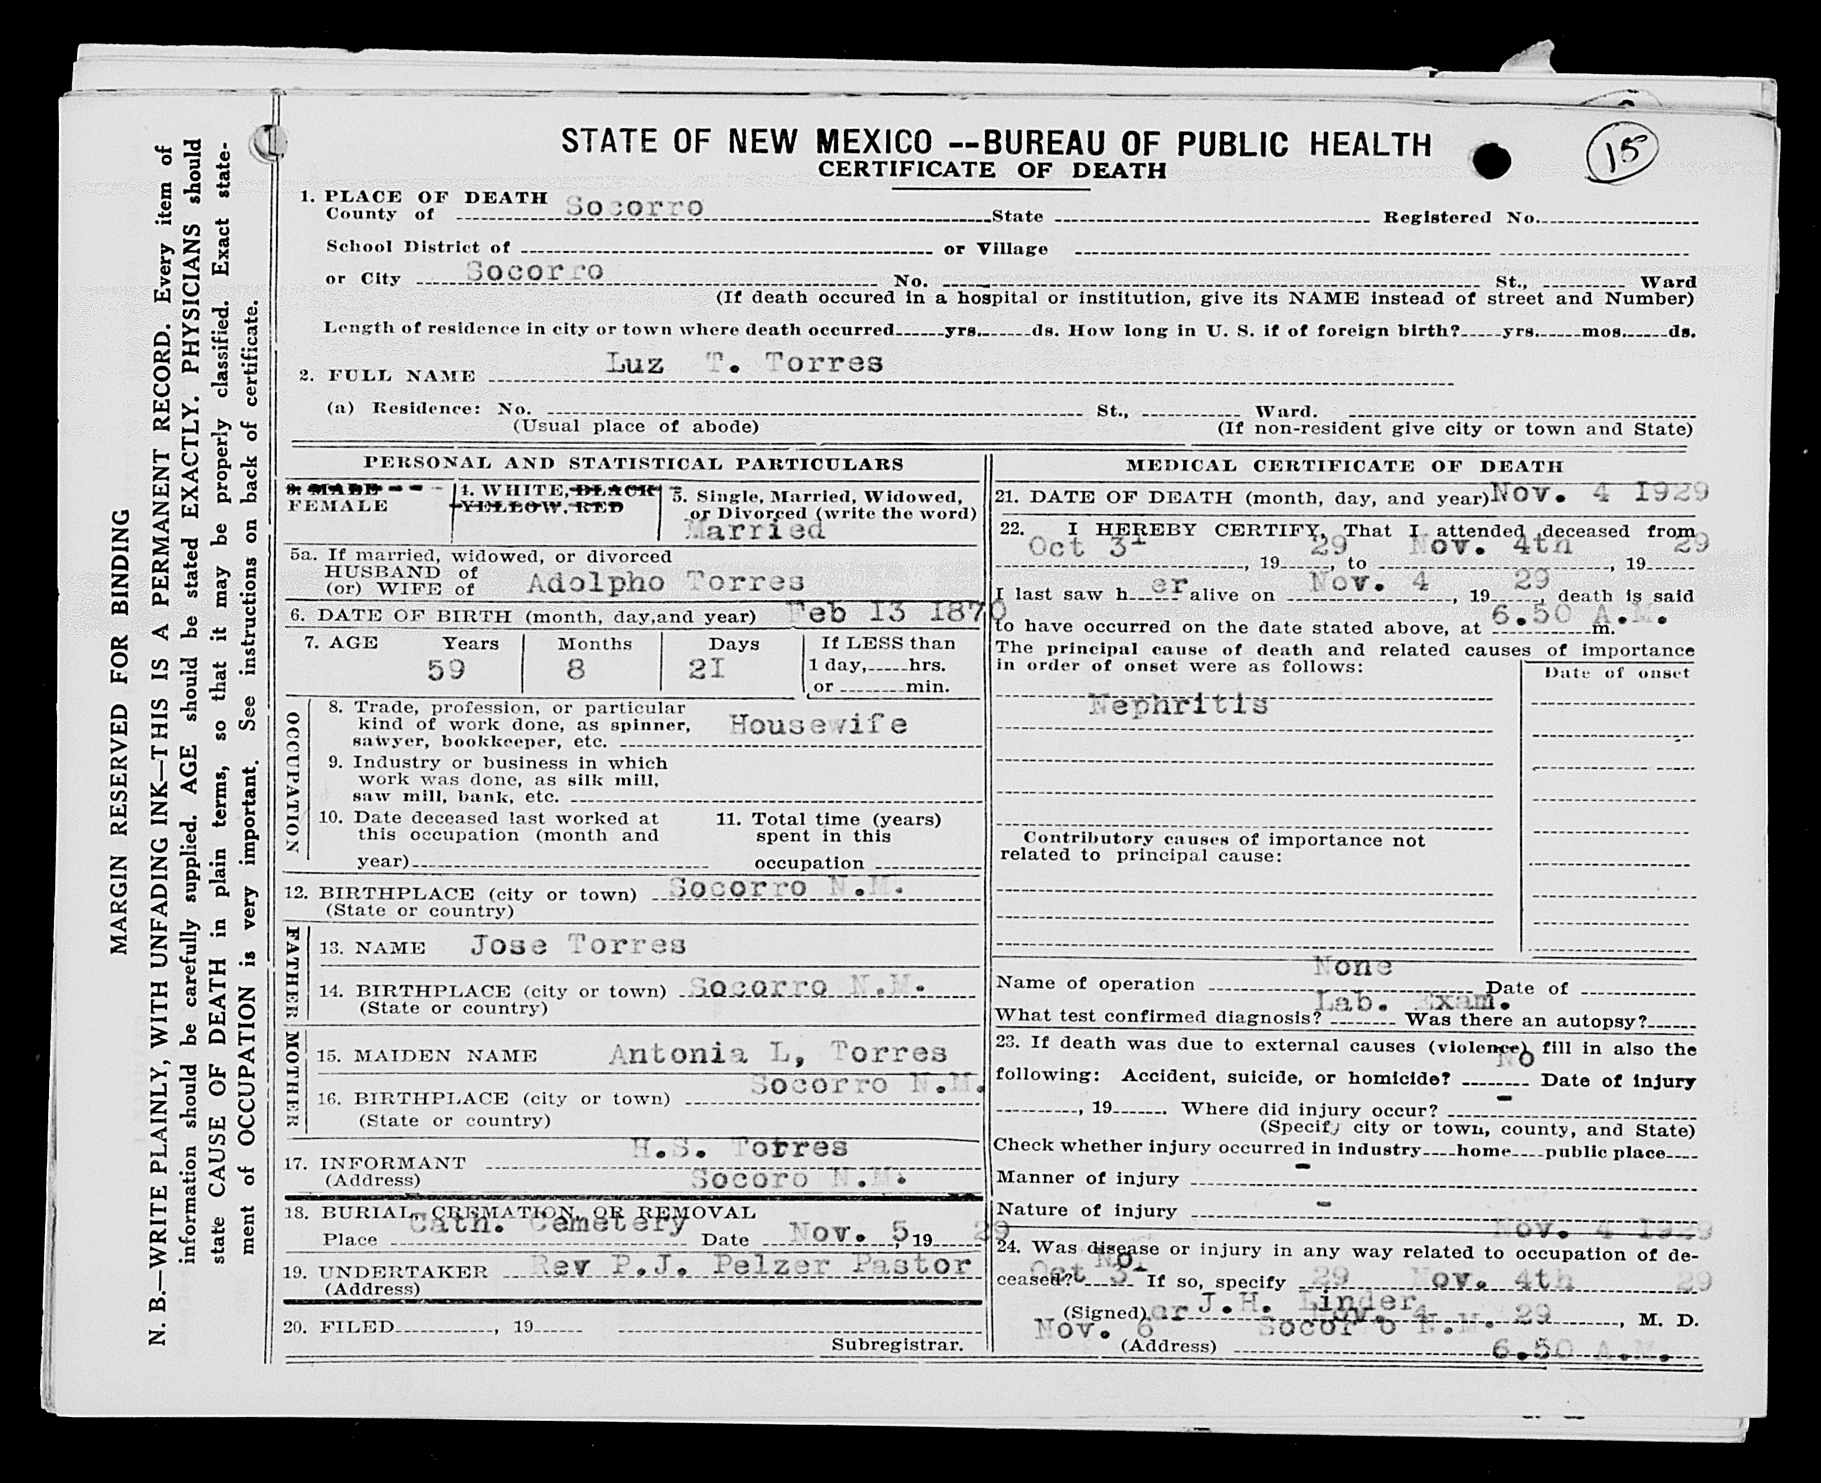 STATE OF NEW MEXICO --BUREAU OF PUBLIC HEALTH
15
CERTIFICATE OF DEATH
1. PLACE OF DEATH
County of Socorro State Registered No.
School District of or Village
or City Socorro No. St., Ward
(If death occured in a hospital or institution, give its NAME instead of street and Number)
Length of residence in city or town where death occurred yrs. ds. How long in U. S. if of foreign birth? yrs. mos. ds.
2. FULL NAME Luz T. Torres
(a) Residence: No. St., Ward.
(Usual place of abode) (If non-resident give city or town and State)
PERSONAL AND STATISTICAL PARTICULARS
3. MALE
FEMALE
4. WHITE, BLACK
YELLOW, RED
5. Single, Married, Widowed,
or Divorced (write the word)
Married
5a. If married, widowed, or divorced
HUSBAND of
(or) WIFE of Adolpho Torres
6. DATE OF BIRTH (month, day,and year) Feb 13 1870
7. AGE Years Months Days If LESS than
59 8 21 1 day, hrs.
or min.
OCCUPATION
8. Trade, profession, or particular
kind of work done, as spinner, Housewife
sawyer, bookkeeper, etc.
9. Industry or business in which
work was done, as silk mill,
saw mill, bank, etc.
10. Date deceased last worked at
this occupation (month and
year)
11. Total time (years)
spent in this
occupation
12. BIRTHPLACE (city or town) Socorro N.M.
(State or country)
FATHER
13. NAME Jose Torres
14. BIRTHPLACE (city or town) Socorro N.M.
(State or country)
MOTHER
15. MAIDEN NAME Antonia L, Torres
16. BIRTHPLACE (city or town) Socorro N.M.
(State or country)
17. INFORMANT H.S. Torres
(Address) Socoro N.M.
18. BURIAL, CREMATION, OR REMOVAL
Place Cath. Cemetery Date Nov. 5, 19 29
19. UNDERTAKER Rev P.J. Pelzer Pastor
(Address)
20. FILED , 19
Subregistrar.
MEDICAL CERTIFICATE OF DEATH
21. DATE OF DEATH (month, day, and year) Nov. 4 1929
22. I HEREBY CERTIFY, That I attended deceased from
Oct 31 , 19 29 , to Nov. 4th , 19 29
I last saw h er alive on Nov. 4 , 19 29 , death is said
to have occurred on the date stated above, at 6.50 A.M. m.
The principal cause of death and related causes of importance
in order of onset were as follows: Date of onset
Nephritis
Contributory causes of importance not
related to principal cause:
Name of operation None Date of
What test confirmed diagnosis? Lab. Exam. Was there an autopsy?
23. If death was due to external causes (violence) fill in also the
following: Accident, suicide, or homicide? No Date of injury
, 19 . Where did injury occur? -
(Specify city or town, county, and State)
Check whether injury occurred in industry home public place
Manner of injury -
Nature of injury -
Nov. 4 1929
24. Was disease or injury in any way related to occupation of de-
ceased? No. If so, specify
Oct 31 29 Nov. 4th 29
(Signed) J.H. Linder , M. D.
er Nov. 4 29
Nov. 6 Socorro N.M.
(Address)
6.50 A.M.
MARGIN RESERVED FOR BINDING
N. B.—WRITE PLAINLY, WITH UNFADING INK—THIS IS A PERMANENT RECORD. Every item of
information should be carefully supplied. AGE should be stated EXACTLY. PHYSICIANS should
state CAUSE OF DEATH in plain terms, so that it may be properly classified. Exact state-
ment of OCCUPATION is very important. See instructions on back of certificate.